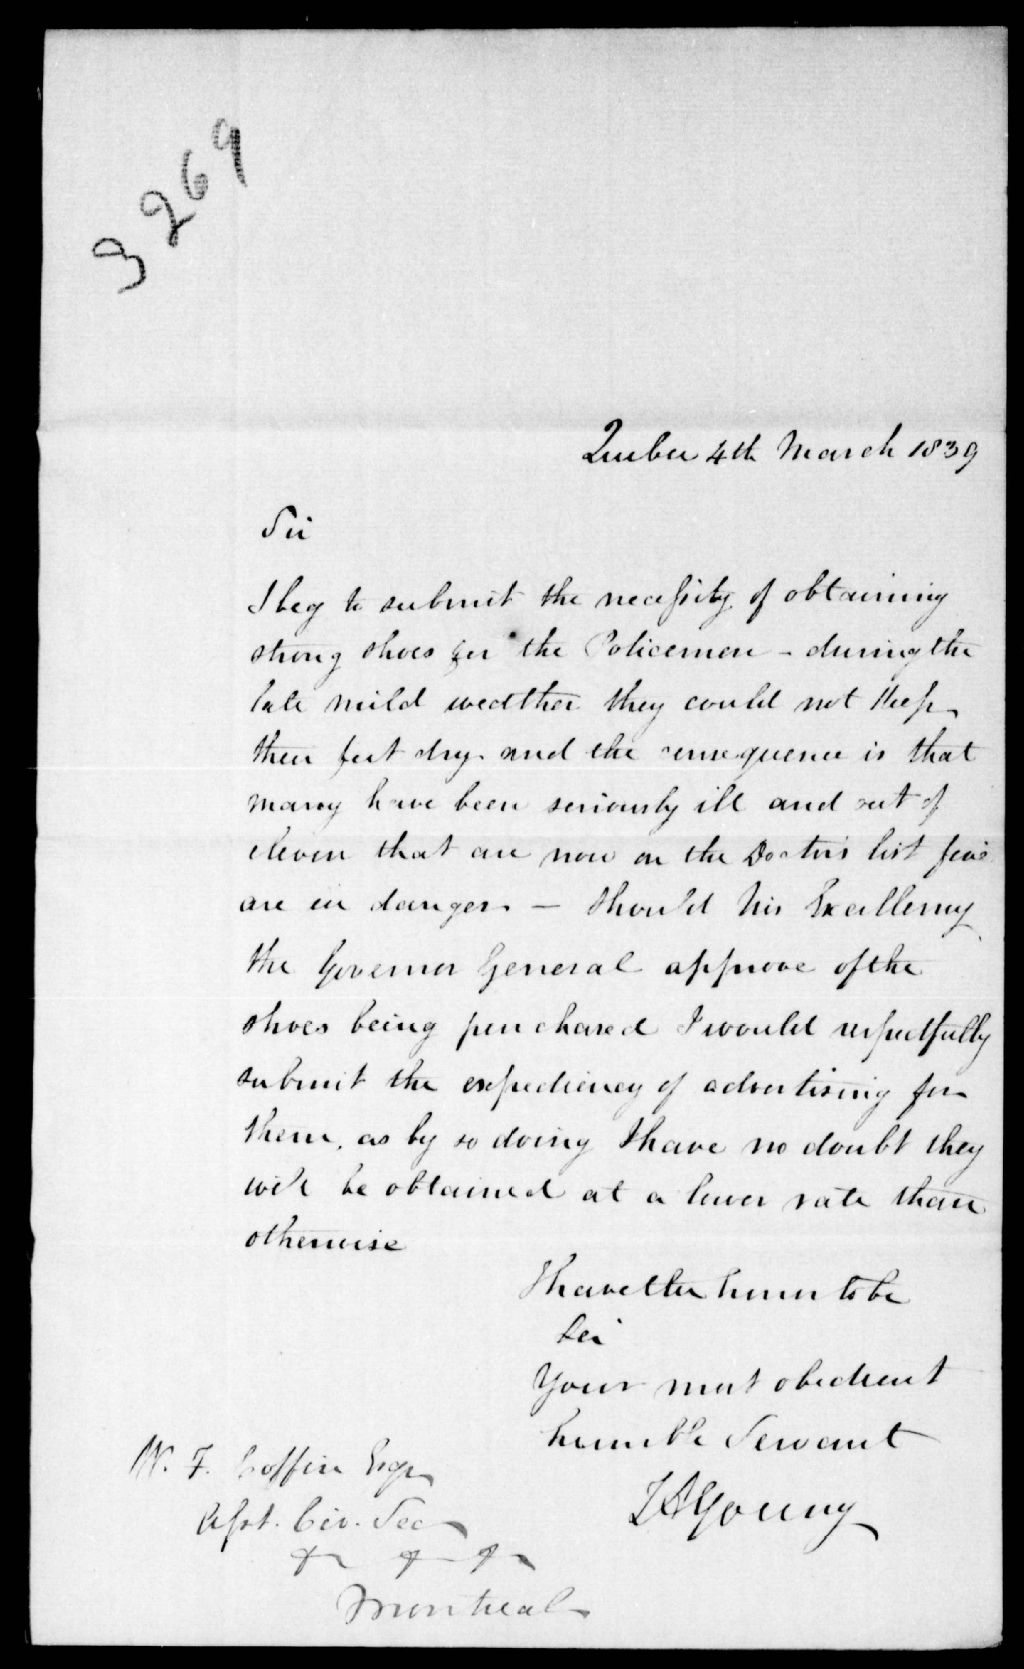 3269
Quebec 4th March 1839
Sir
I beg to submit the necessity of obtaining
strong shoes for the Policemen – during the
late mild weather they could not keep
their feet dry and the consequence is that
many have been seriously ill and out of
eleven that are now on the Doctor's list five
are in danger. – Should his Excellency
the Governor General approve of the
shoes being purchased I would respectfully
submit the expediency of advertising for
them, as by so doing I have no doubt they
will be obtained at a lower rate than
otherwise
I have the honor to be
Sir
Your most obedient
humble Servant
T A Young
W. F. Coffin Esqr
Asst. Civ. Sec
&c &c &c
Montreal